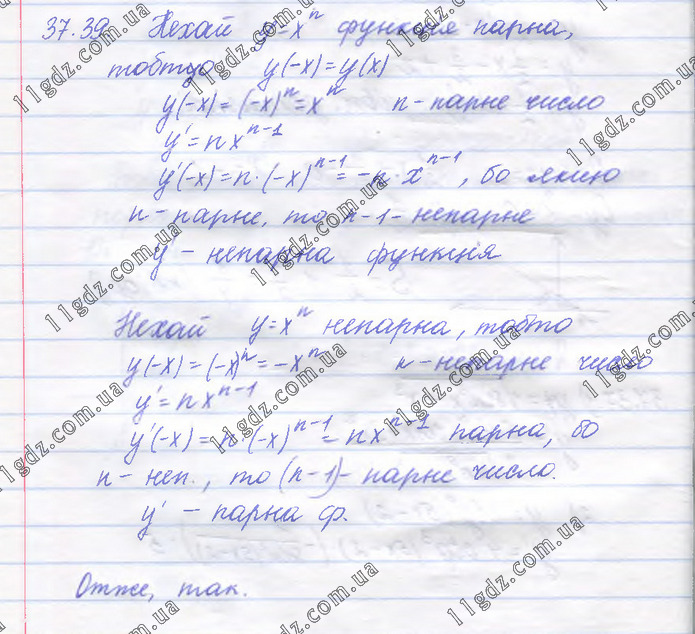 37.39 Нехай y=xⁿ функція парна,
тобто y(-x)=y(x)
y(-x)=(-x)ⁿ=xⁿ n-парне число
y'=nxⁿ⁻¹
y'(-x)=n·(-x)ⁿ⁻¹=-n·xⁿ⁻¹, бо якщо
n-парне, то n-1-непарне
y'-непарна функція
Нехай y=xⁿ непарна, тобто
y(-x)=(-x)ⁿ=-xⁿ n-непарне число
y'=nxⁿ⁻¹
y'(-x)=n·(-x)ⁿ⁻¹=nxⁿ⁻¹ парна, бо
n-неп., то (n-1)-парне число.
y' - парна ф.
Отже, так.
11gdz.com.ua